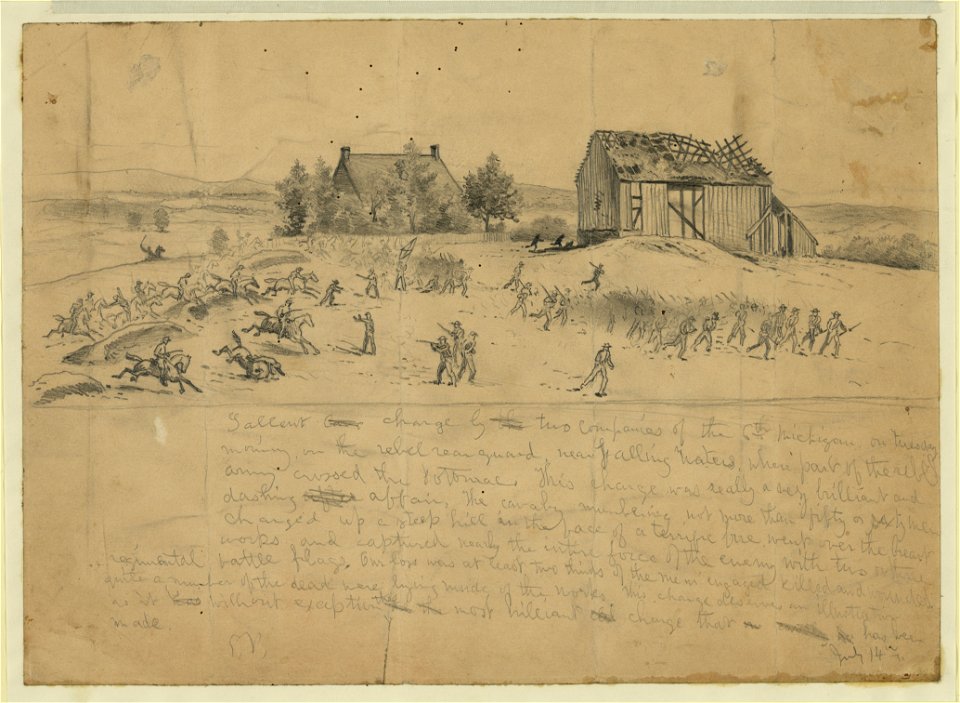 Gallent charge by two companies of the 6th Michigan, on tuesday
morning, on the rebel rear guard, near Falling Waters, where part of the rebel
army crossed the Potomac. This charge was really a very brilliant and
dashing affair, The cavalry numbering not more than fifty or sixty men
charged up a steep hill in the face of a terrific fire, went over the breast
works, and captured nearly the entire force of the enemy with two or three
regimental battle flags. Our loss was at least two thirds of the men engaged killed and wounded
quite a number of the dead were lying inside of the works. This charge deserves an illustration
as it without exception the most brilliant charge that has been
made.
July 14